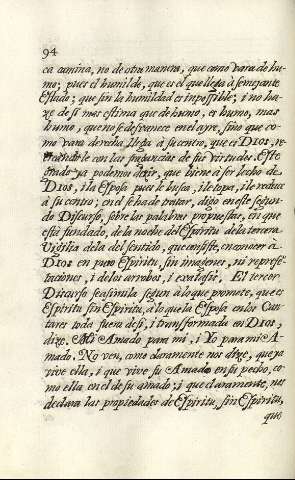 94
ca camina, no de otra manera, que como vara de hu-
mo; pues el humilde, que es el que llega à semejante
Estado; que sin la humildad es impossible; i no ha-
ze de sí mas estima que de humo, es humo, mas
humo, que no se desvanece en el ayre, sino que co-
mo vara derecha, llega à su centro, que es DIOS, re-
creandole con las fragancias de sus virtudes. Este
Estado ya podemos dezir, que viene à ser lecho de
DIOS, i la Esposa pues le busca, i le topa, i le reduce
à su centro; en el se ha de tratar, digo en este segun-
do Discurso, sobre las palabras propuestas, en que
està fundado, de la noche del Espiritu de la tercera
Vigilia de la del sentido, que consiste, en conocer à
DIOS en puro Espiritu, sin imagenes, ni represen-
taciones, i de los arrobos, i extasis. El tercer
Discurso se assimila segun à lo que promete, que es
Espiritu sin Espiritu, à lo que la Esposa en los Can-
tares toda fuera de sí, i transformada en DIOS,
dize. Mi Amado para mi, i Yo para mi A-
mado. No ven, como claramente nos dize, que ya
vive ella, i que vive su Amado en su pecho, co-
mo ella en el de su amado; i que claramente, nos
declara las propiedades de Espiritu, sin Espiritu,
que